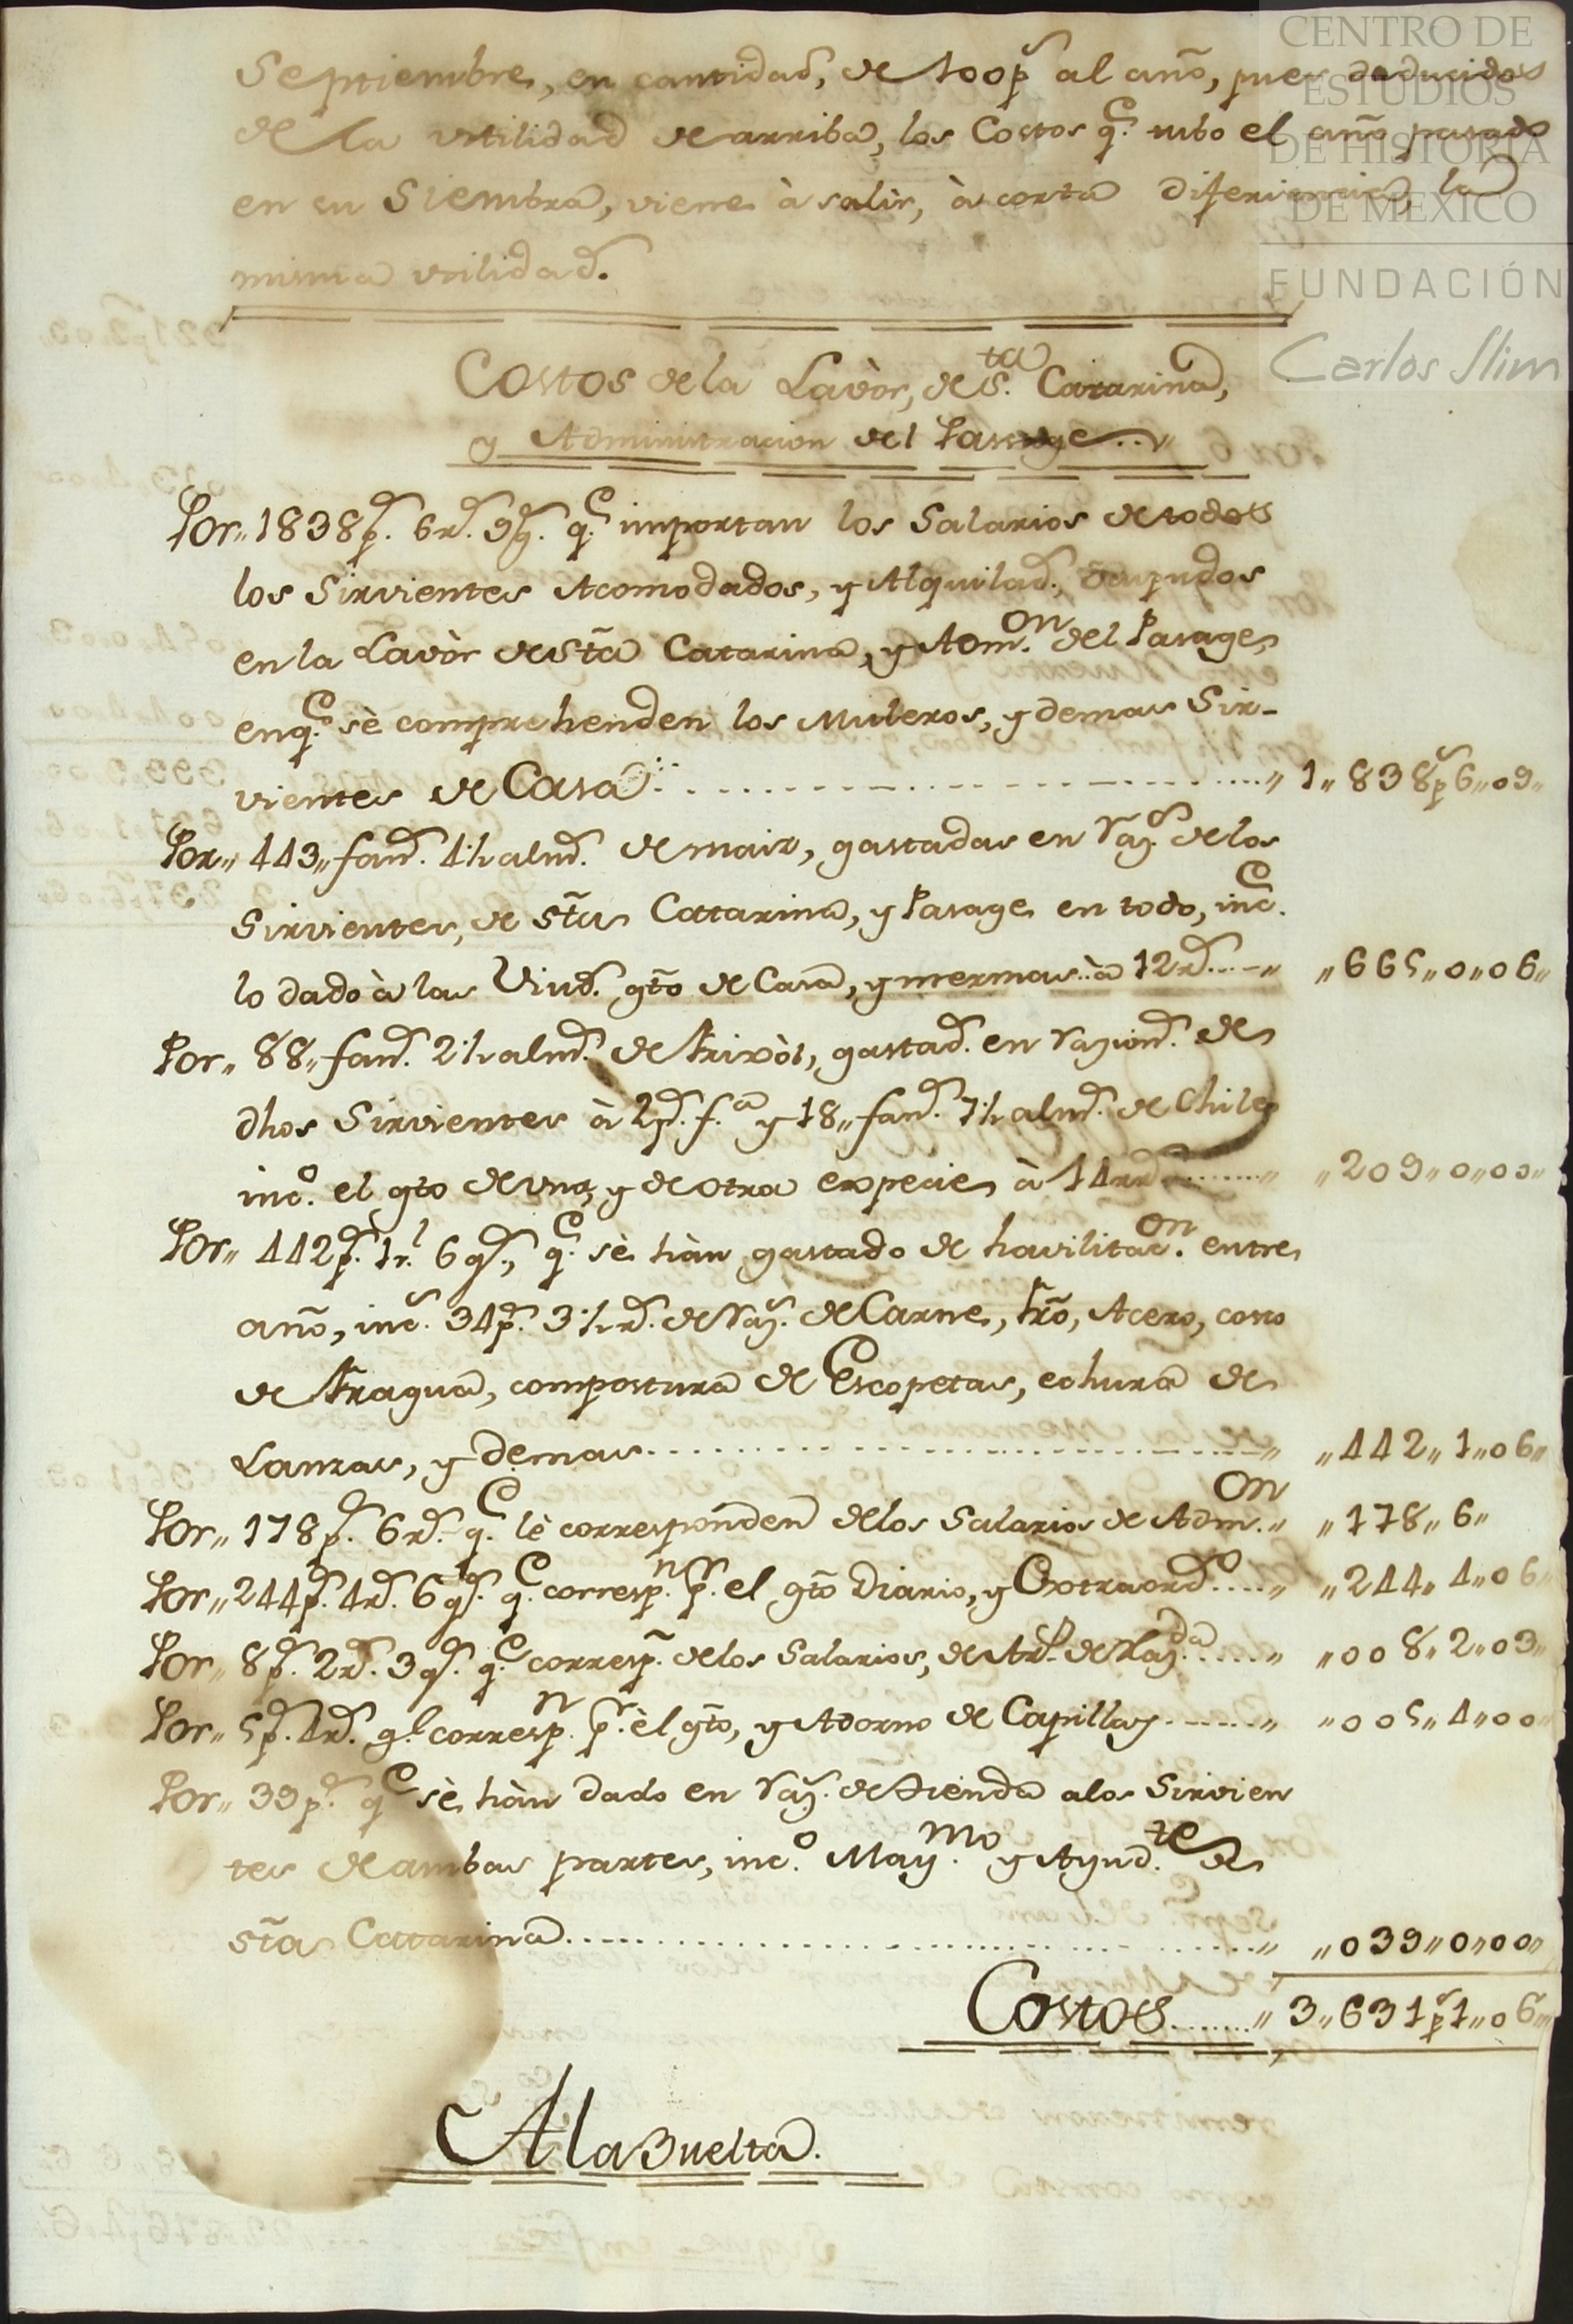 Septiembre, en cantidad, de 100ps al año, pues deducidos
de la vtilidad de arriba, los Costos q.e vubo el año pasado
en su Siembra, viene à salir, à corta diferiencia, la
misma vtilidad.
Costos de la Lavòr, de S.ta Catarina,
y Administracion del Pasage
Por„ 1838p.s 6r.s 9g.s q.e importan los Salarios de todos
los Sirvientes Acomodados, y Alquilad.s ocupados
en la Lavòr de Sta Catarina, y Adm.on del Pasage,
en q.e sè comprehenden los Muleros, y demas Sir-
vientes de Casa „ 1„ 838ps 6„ 09„
Por„ 443„ fan.s 4½ alm.s de maiz, gastadas en raz.s de los
Sirvientes, de Sta Cattarina, y Pasage en todo, inc.e
lo dado à las Viud.s gto de Casa, y mermas à 12r.s „ „ 665„ 0„ 06„
Por„ 88„ fan.s 2½ alm.s de Frixòl, gastad.s en razion.s de
dhos Sirvientes à 2p.s f.a y 18„ fan.s 7½ alm.s de Chile
inc.o el gto de vna, y de otra expecie à 14rr.s „ „ 209„ 0„ 00„
Por„ 442p.s 1r.l 6g.s, q.e sè hàn gastado de havilitac.on en tre
año, inc.s 34p.s 3½r.s de raz.s de Carne, Fro, Acero, costo
de Fragua, compostura de Escopetas, echura de
Lanzas, y demas „ „ 442„ 1„ 06„
Por„ 178p.s 6r.s q.e lè corresponden de los Salarios de Adm.on „ „ 178„ 6„
Por„ 244p.s 4r.s 6g.s q.e corresp.n p.r el gto Diario, y Extraord.o „ „ 244„ 4„ 06„
Por„ 8p.s 2r.s 3g.s q.e corresp.n de los Salarios, de de Haz.da „ „ 008„ 2„ 03„
Por„ 5p.s 4r.s q.l corresp.n p.r èl gto, y Adorno de Capillas „ „ 005„ 4„ 00„
Por„ 39p.s q.e sè hàn dado en raz.s de tienda a los Sirvien
tes de ambas partes, inc.o May.mo y Ayud.te de
Sta Cattarina „ „ 039„ 0„ 00„
Costos „ 3„ 631ps 1„ 06„
A la Buelta.
CENTRO DE
ESTUDIOS
DE HISTORIA
DE MEXICO
FUNDACIÓN
Carlos Slim